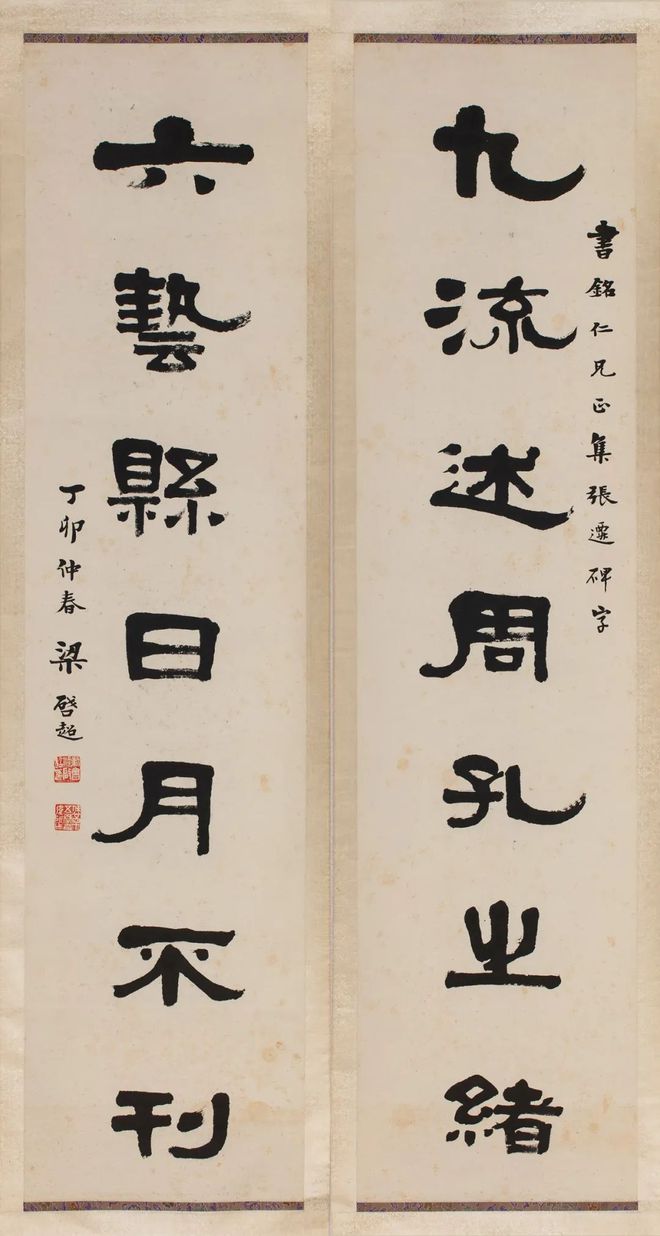 書銘仁兄正集張遷碑字
九流述周孔之緒
六藝縣日月不刊
丁卯仲春梁啓超